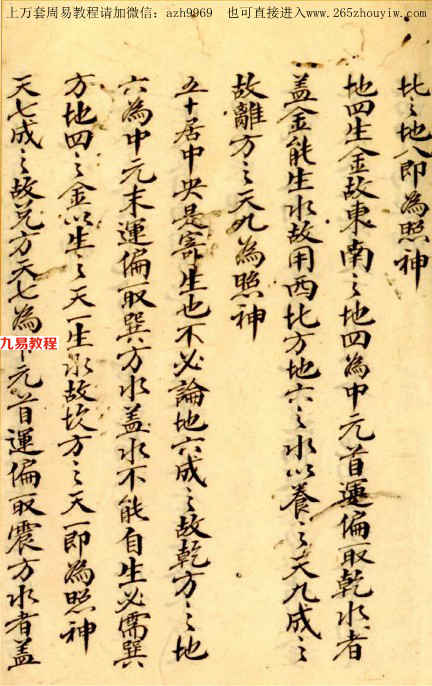 上万套周易教程请加微信：azh9969 也可直接进入www.265zhouyiw.com
比之地八即為照神
地四生金故東南之地四為中元首運偏取乾水者
盖金能生水故用西北方地六之水以養之天九成之
故離方之天九為照神
五十居中央是寄生也不必論地六成之故乾方之地
六為中元末運偏取巽方水盖水不能自生必需巽
方地四之金以生之天一生水故坎方之天一即為照神
天七成之故兌方天七為下元首運偏取震方水者盖
九易教程